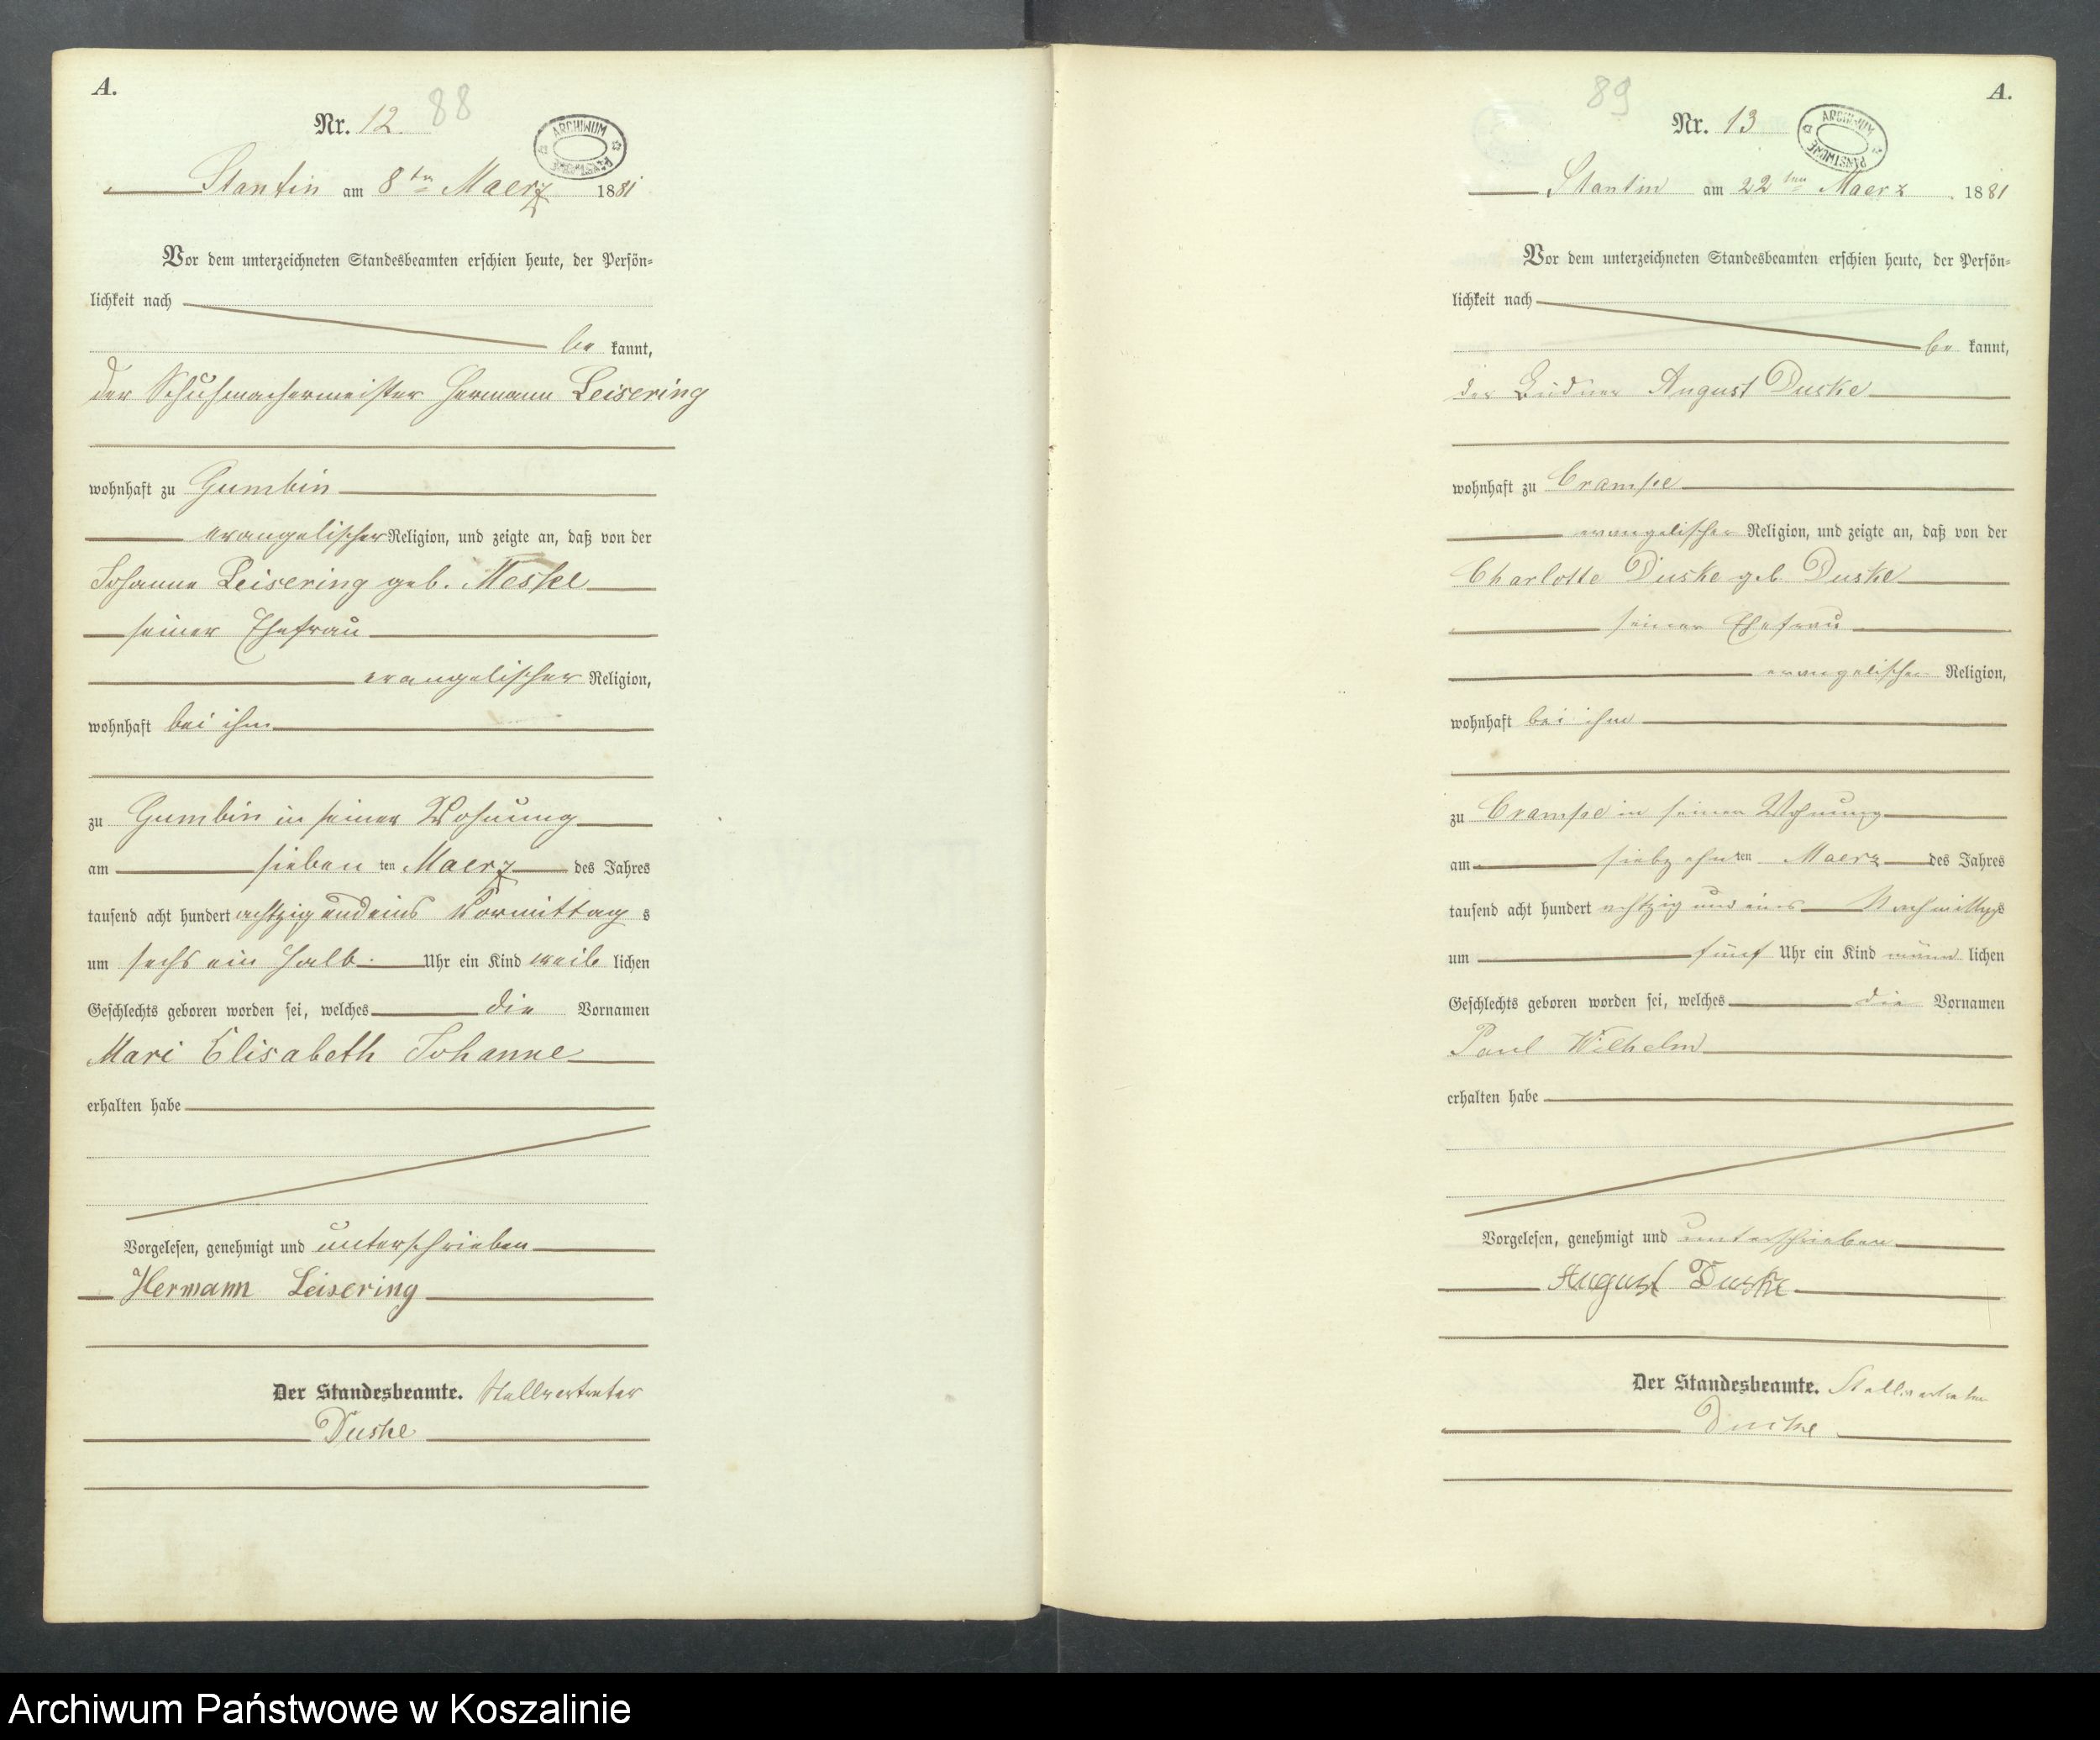 A.
Nr. 12. 88
ARCHIWUM PAŃSTWOWE
Stantin am 8ten Maerz 1881
Vor dem unterzeichneten Standesbeamten erschien heute, der Persön-
lichkeit nach
be kannt,
der Schuhmachermeister Hermann Leisering
wohnhaft zu Gumbin
evangelischer Religion, und zeigte an, daß von der
Johanne Leisering geb. Meske
seiner Ehefrau
evangelischer Religion,
wohnhaft bei ihm
zu Gumbin in seiner Wohnung
am sieben ten Maerz des Jahres
tausend acht hundert achtzig und eins Vormittag s
um sechs ein halb Uhr ein Kind weib lichen
Geschlechts geboren worden sei, welches die Vornamen
Mari Elisabeth Johanne
erhalten habe
Vorgelesen, genehmigt und unterschrieben
Hermann Leisering
Der Standesbeamte. Stellvertreter
Duske
89 A.
Nr. 13
ARCHIWUM PAŃSTWOWE
Stantin am 22ten Maerz 1881
Vor dem unterzeichneten Standesbeamten erschien heute, der Persön-
lichkeit nach
be kannt,
der Büdner August Duske
wohnhaft zu Crampe
evangelischer Religion, und zeigte an, daß von der
Charlotte Duske geb. Duske
seiner Ehefrau
evangelischer Religion,
wohnhaft bei ihm
zu Crampe in seiner Wohnung
am siebzehn ten Maerz des Jahres
tausend acht hundert achtzig und eins Nachmittags
um fünf Uhr ein Kind männ lichen
Geschlechts geboren worden sei, welches die Vornamen
Paul Wilhelm
erhalten habe
Vorgelesen, genehmigt und unterschrieben
August Duske
Der Standesbeamte. Stellvertreter
Duske
Archiwum Państwowe w Koszalinie